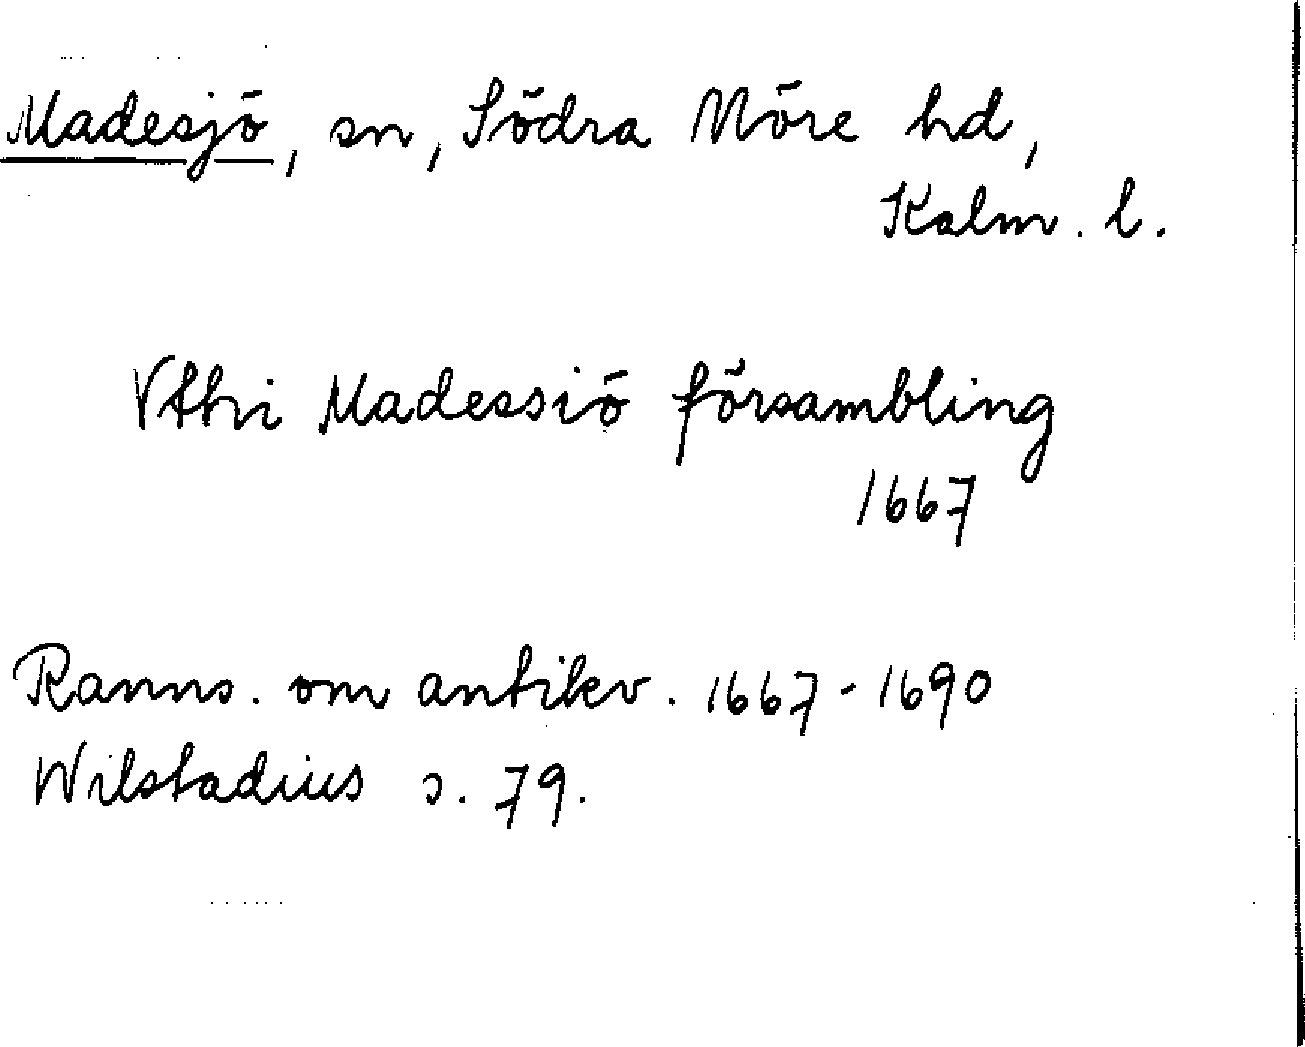 Madesjö, sn, Södra Möre hd,
Kalm. l.
Vthi Madessiö försambling
1667
Ranns. om antikv. 1667-1690
Wilstadius s. 79.